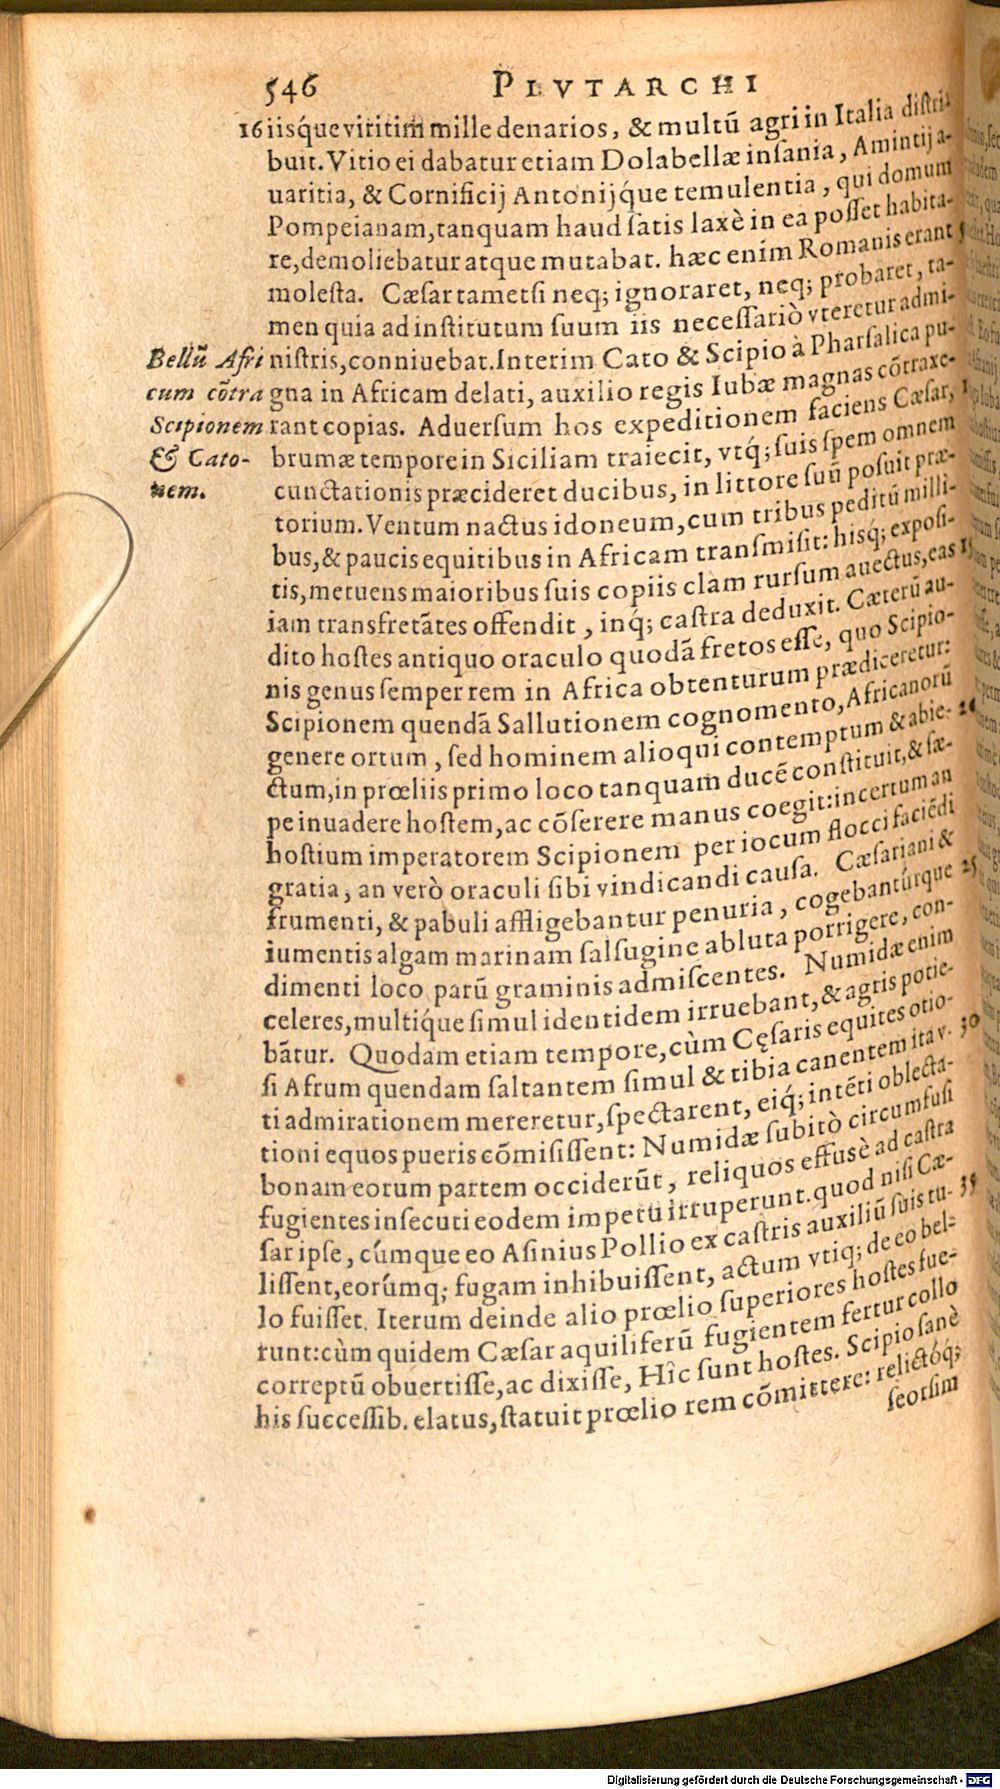 546 PLVTARCHI
16 iisque viritim mille denarios, & multũ agri in Italia distri-
buit. Vitio ei dabatur etiam Dolabellæ insania, Amintij a-
uaritia, & Cornificij Antonijq́ue temulentia, qui domum
Pompeianam, tanquam haud satis laxè in ea posset habita-
re, demoliebatur atque mutabat. hæc enim Romanis erant 5
molesta. Cæsar tametsi neq; ignoraret, neq; probaret, ta-
men quia ad institutum suum iis necessariò vteretur admi-
Bellũ Afri nistris, conniuebat. Interim Cato & Scipio à Pharsalica pu-
cum cõtra gna in Africam delati, auxilio regis Iubæ magnas cõtraxe-
Scipionem rant copias. Aduersum hos expeditionem faciens Cæsar, 1
& Cato- brumæ tempore in Siciliam traiecit, vtq́; suis spem omnem
nem. cunctationis præcideret ducibus, in littore suũ posuit præ-
torium. Ventum nactus idoneum, cum tribus peditũ milli-
bus, & paucis equitibus in Africam transmisit: hisq́; exposi-
tis, metuens maioribus suis copiis clam rursum auectus, eas 15
iam transfretãtes offendit, inq́; castra deduxit. Cæterũ au-
dito hostes antiquo oraculo quodã fretos esse, quo Scipio-
nis genus semper rem in Africa obtenturum prædiceretur:
Scipionem quendã Sallutionem cognomento, Africanorũ
genere ortum, sed hominem alioqui contemptum & abie- 20
ctum, in prœliis primo loco tanquam ducẽ constituit, & sæ-
pe inuadere hostem, ac cõserere manus coegit: incertum an
hostium imperatorem Scipionem per iocum flocci faciẽdi
gratia, an verò oraculi sibi vindicandi causa. Cæsariani &
frumenti, & pabuli affligebantur penuria, cogebantúrque 25
iumentis algam marinam salsugine abluta porrigere, con-
dimenti loco parũ graminis admiscentes. Numidæ enim
celeres, multiq́ue simul identidem irruebant, & agris potie-
bãtur. Quodam etiam tempore, cùm Cęsaris equites otio-
si Afrum quendam saltantem simul & tibia canentem ita v- 30
ti admirationem mereretur, spectarent, eiq́; intẽti oblecta-
tioni equos pueris cõmisissent: Numidæ subitò circumfusi
bonam eorum partem occiderũt, reliquos effusè ad castra
fugientes insecuti eodem impetu irruperunt. quod nisi Cæ-
sar ipse, cúmque eo Asinius Pollio ex castris auxiliũ suis tu- 35
lissent, eorúmq; fugam inhibuissent, actum vtiq; de eo bel-
lo fuisset. Iterum deinde alio prœlio superiores hostes fue-
runt: cùm quidem Cæsar aquiliferũ fugientem fertur collo
correptũ obuertisse, ac dixisse, Hîc sunt hostes. Scipio sanè
his successib. elatus, statuit prœlio rem cõmittere: relictóq;
seorsim
Digitalisierung gefördert durch die Deutsche Forschungsgemeinschaft - DFG